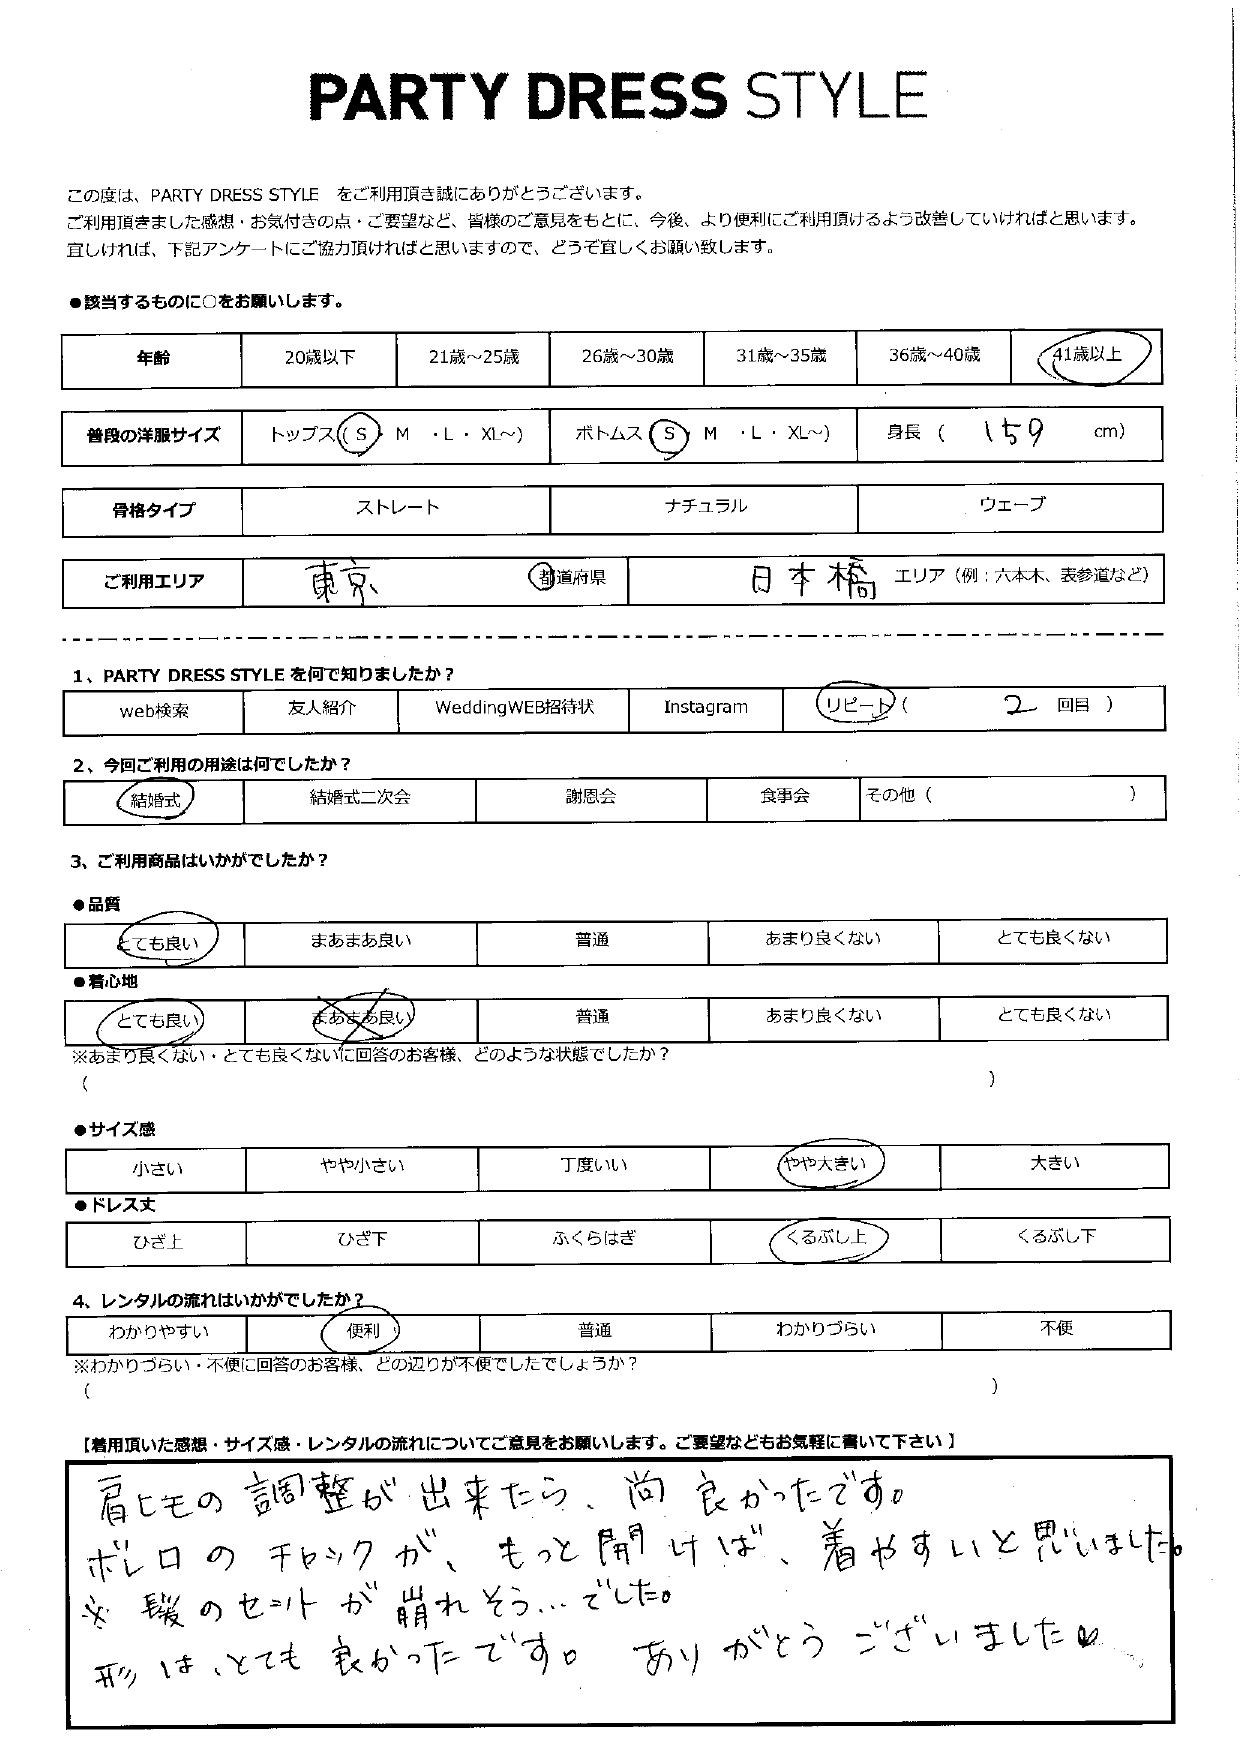 PARTY DRESS STYLE
この度は、PARTY DRESS STYLE をご利用頂き誠にありがとうございます。
ご利用頂きました感想・お気付きの点・ご要望など、皆様のご意見をもとに、今後、より便利にご利用頂けるよう改善していければと思います。
宜しければ、下記アンケートにご協力頂ければと思いますので、どうぞ宜しくお願い致します。
●該当するものに○をお願いします。
年齢 20歳以下 21歳～25歳 26歳～30歳 31歳～35歳 36歳～40歳 41歳以上
普段の洋服サイズ トップス(S・M ・L・XL～) ボトムス(S・M ・L・XL～) 身長 ( 159 cm)
骨格タイプ ストレート ナチュラル ウェーブ
ご利用エリア 東京 都道府県 日本橋 エリア（例：六本木、表参道など）
1、PARTY DRESS STYLE を何で知りましたか？
web検索 友人紹介 WeddingWEB招待状 Instagram リピート ( 2 回目 )
2、今回ご利用の用途は何でしたか？
結婚式 結婚式二次会 謝恩会 食事会 その他 ( )
3、ご利用商品はいかがでしたか？
●品質
とても良い まあまあ良い 普通 あまり良くない とても良くない
●着心地
とても良い まあまあ良い 普通 あまり良くない とても良くない
※あまり良くない・とても良くないに回答のお客様、どのような状態でしたか？
( )
●サイズ感
小さい やや小さい 丁度いい やや大きい 大きい
●ドレス丈
ひざ上 ひざ下 ふくらはぎ くるぶし上 くるぶし下
4、レンタルの流れはいかがでしたか？
わかりやすい 便利 普通 わかりづらい 不便
※わかりづらい・不便に回答のお客様、どの辺りが不便でしたでしょうか？
( )
【着用頂いた感想・サイズ感・レンタルの流れについてご意見をお願いします。ご要望などもお気軽に書いて下さい】
肩ヒモの調整が出来たら、尚良かったです。
ボレロのチャックが、もっと開けば、着やすいと思いました。
※髪のセットが崩れそう…でした。
形は、とても良かったです。ありがとうございました♡